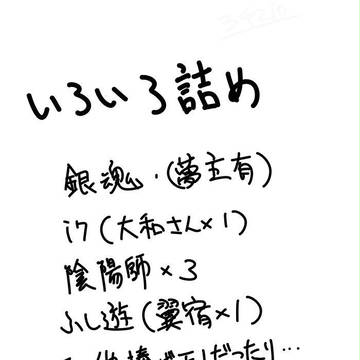 いろいろ詰め
銀魂・(夢主有)
i7(大和さん×1)
陰陽師×3
ふし遊(翼宿×1)
だったり…